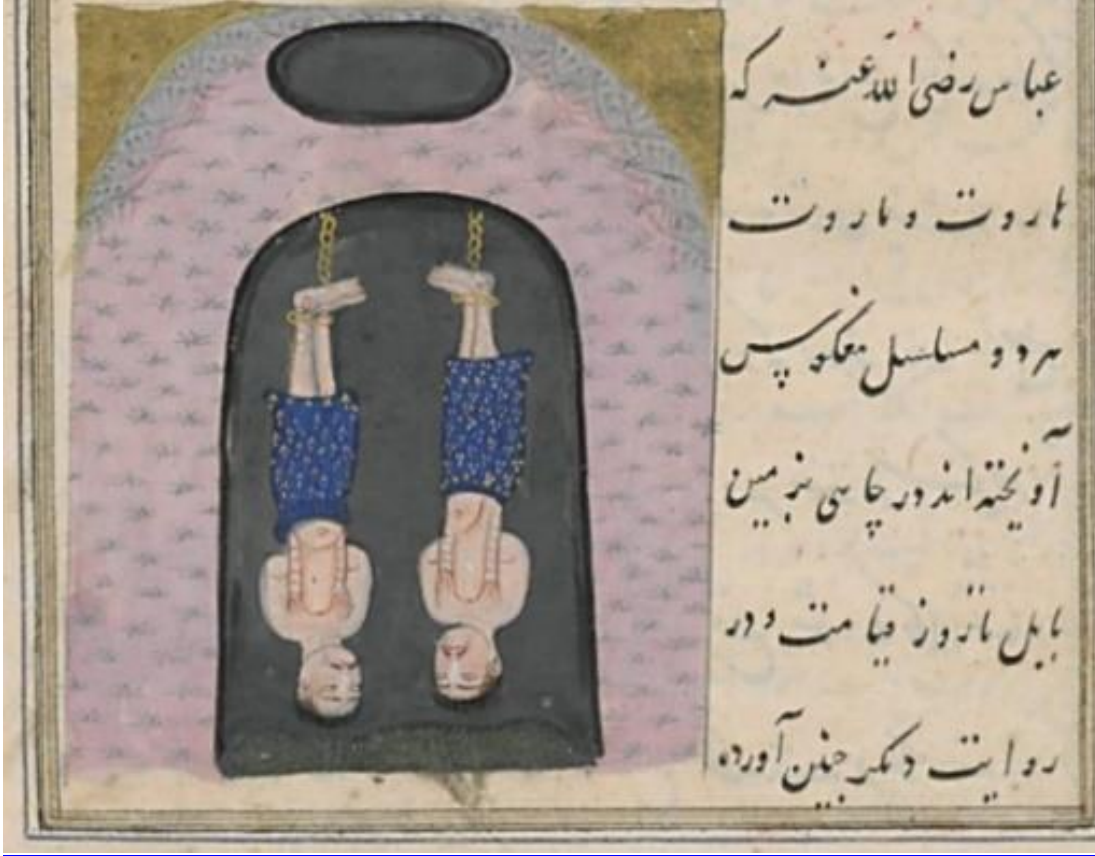 عباس رضی الله عنه که
هاروت و ماروت
هردو مسلسل معکوس
آویخته اند در چاهی بزمین
بابل تا روز قیامت و در
روایت دیگر چنین آورده